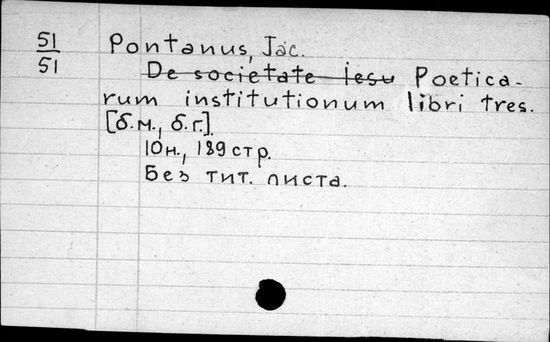 51
51
Pontanus, Jac.
De societate Iesu Poetica-
rum institutionum libri tres.
[б.м., б.г.].
10н., 189 стр.
Без тит. листа.